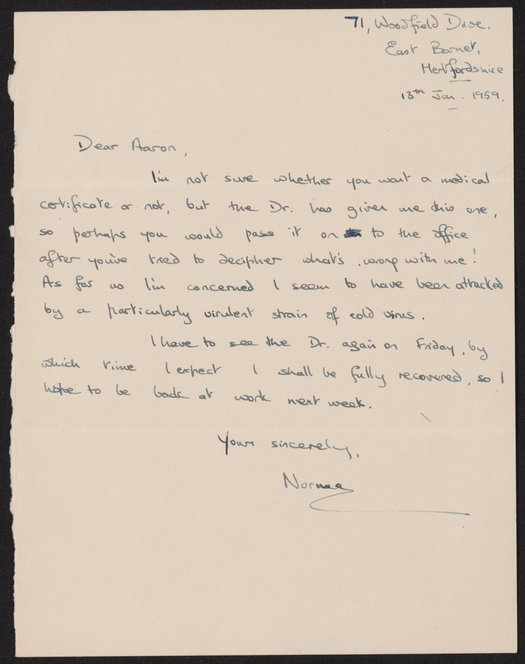 71, Woodfield Drive,
East Barnet,
Hertfordshire
13th Jan. 1959.
Dear Aaron,
I'm not sure whether you want a medical
certificate or not, but the Dr. has given me this one,
so perhaps you would pass it on to the office
after you've tried to decipher what's wrong with me!
As far as I'm concerned I seem to have been attacked
by a particularly virulent strain of cold virus.
I have to see the Dr. again on Friday, by
which time I expect I shall be fully recovered, so I
hope to be back at work next week.
Yours sincerely,
Norma